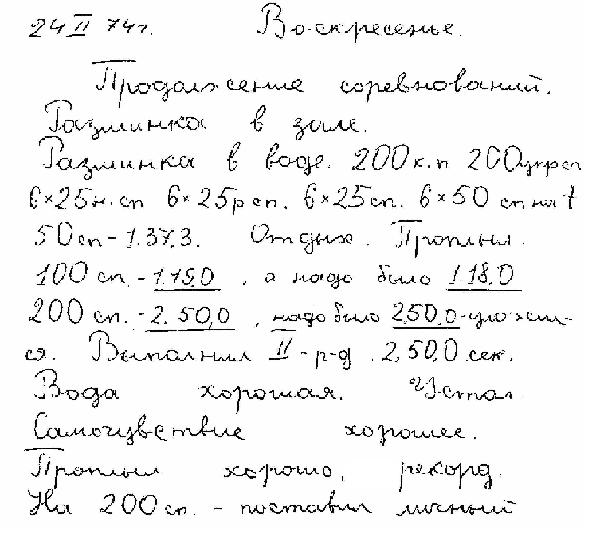 24 II 74г. Воскресенье.
Продолжение соревнований.
Разминка в зале.
Разминка в воде. 200к.п 200упрсп
6×25н.сп 6×25рсп. 6×25сп. 6×50 сп на t
50сп-1.37,3. Отдых. Проплыл.
100 сп. - 1.19,0, а надо было 1 18,0
200 сп. - 2.50,0, надо было 2.50,0-уложил-
ся. Выполнил II-р-д. 2,50,0 сек.
Вода хорошая. Устал.
Самочувствие хорошее.
Проплыл хорошо, рекорд.
На 200 сп. - поставил личный